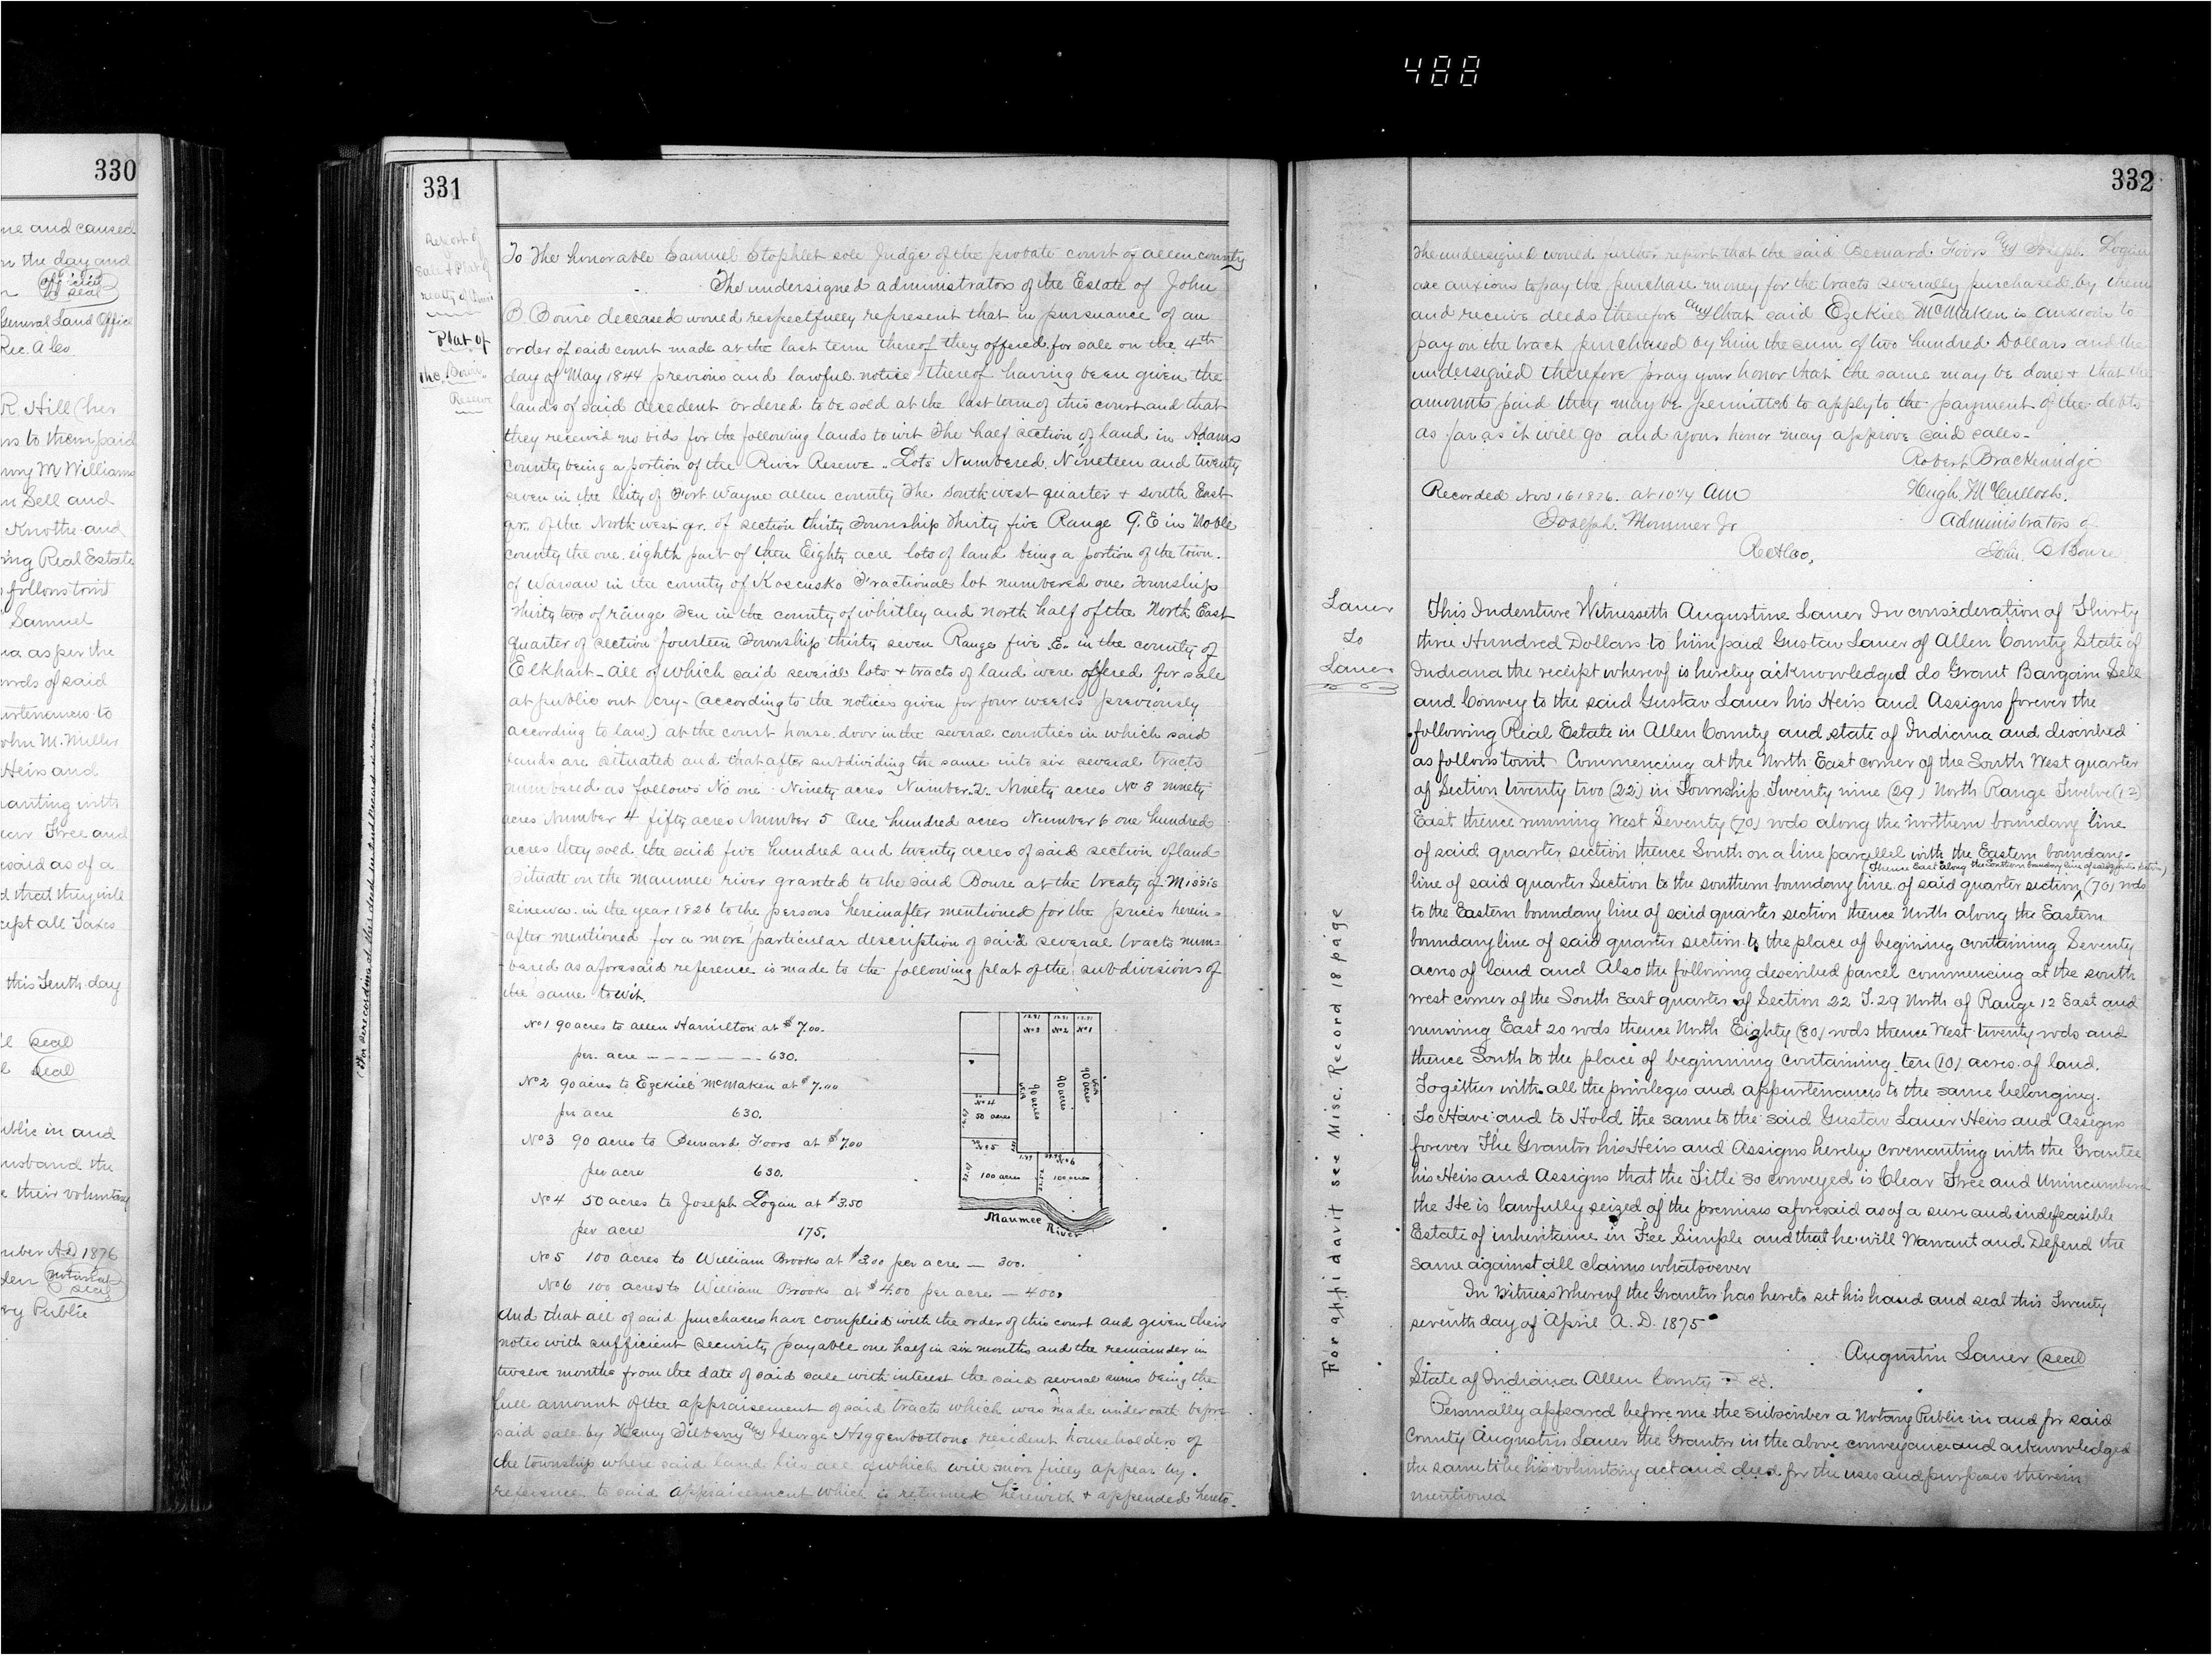 488
330
me and caused
on the day and
official
seal
General Land Office
Rec. A Co
R. Hill (her
ns to them paid
M Williams
n Sell and
Knothe and
ing Real Estate
follows towit
Samuel
na as per the
words of said
urtenances to
John M. Miller
Heirs and
nanting with
lear Free and
resaid as of a
d that they will
cept all Taxes
this Tenth day
seal
seal
ublic in and
usband the
e their voluntary
mber A.D 1876
notarial
seal
ry Public
331
Report of
Sale & Plat of
realty of
Plat of
the "Bourie"
Reserve
To The honorable Samuel Stophlet sole Judge of the probate court of allen county
The undersigned administrators of the Estate of John
B. Bourie deceased would respectfully represent that in pursuance of an
order of said court made at the last term thereof they offered for sale on the 4th
day of May 1844 previous and lawful notice thereof having been given the
lands of said decedent ordered to be sold at the last term of this court and that
they received no bids for the following lands to wit The half section of land in Adams
county being a portion of the River Reserve. Lots Numbered Nineteen and twenty
seven in the City of Fort Wayne allen county The South west quarter & South East
qr. of the North west qr. of section thirty Township Thirty five Range 9. E in Noble
county the one eighth part of then Eighty acre lots of land being a portion of the town
of Warsaw in the county of Koscusko Fractional lot numbered one Township
Thirty two of range Ten in the county of whitley and north half of the North East
quarter of section fourteen Township thirty seven Range five E. in the county of
Elkhart - all of which said severals lots & tracts of land were offered for sale
at public out cry - (according to the notices given for four weeks previously
according to law.) at the court house door in the several counties in which said
lands are situated and that after subdividing the same into six several tracts
numbered as follows No one Ninety acres Number 2. Ninety acres No 3 ninety
acres Number 4 fifty acres Number 5 One hundred acres Number 6 one hundred
acres they sold the said five hundred and twenty acres of said section of land
situate on the Maumee river granted to the said Bourie at the treaty of Missis
sinewa in the year 1826 to the persons hereinafter mentioned for the prices herein=
after mentioned for a more particular description of said several tracts num=
bered as aforesaid reference is made to the following plat of the subdivisions of
the same to wit.
No 1 90 acres to allen Hamilton at $7.00
per. acre — — — — — — 630.
No 2 90 acres to Ezekiel McMaken at $7.00
per acre 630.
No 3 90 acres to Bernard Foors at $7.00
per acre 630.
No 4 50 acres to Joseph Logan at $3.50
per acre 175.
No 5 100 acres to William Brooks at $3.00 per acre — 300.
No 6 100 acres to William Brooks at $4.00 per acre — 400.
No 3 No 2 No 1
90 acres
90 acres
90 acres
No 4
50 acres
No 5
No 6
100 acres
100 acres
Maumee River
And that all of said purchasers have complied with the order of this court and given their
notes with sufficient security payable one half in six months and the remainder in
twelve months from the date of said sale with interest the said several sums being the
full amount of the appraisement of said tracts which was made under oath before
said sale by Henry Tilberry and George Higgenbottom resident householders of
the township where said land lies all of which will more fully appear by
reference to said appraisement which is returned herewith & appended hereto.
332
The undersigned would further report that the said Bernard Foors and Joseph Logan
are anxious to pay the purchase money for the tracts severally purchased by them
and receive deeds therefore and that said Ezekiel McMaken is anxious to
pay on the tract purchased by him the sum of two hundred Dollars and the
undersigned therefore pray your honor that the same may be done & that the
amounts paid they may be permitted to apply to the payment of the debts
as far as it will go and your honor may approve said sales.
Robert Brackenridge
Recorded Nov 16 1876. at 10 1/4 Am
Hugh McCulloch.
Joseph Mommer Jr
Administrators of
Rec A Co,
John B Bourie
Lauer
To
Lauer
For affidavit see Misc. Record 18 page
This Indenture Witnesseth Augustine Lauer In consideration of Thirty
three Hundred Dollars to him paid Gustav Lauer of Allen County State of
Indiana the receipt whereof is hereby acknowledged do Grant Bargain Sell
and Convey to the said Gustav Lauer his Heirs and Assigns forever the
following Real Estate in Allen County and state of Indiana and discribed
as follows towit Commencing at the North East corner of the South West quarter
of Section twenty two (22) in Township Twenty nine (29) North Range Twelve (12)
East thence running West Seventy (70) rods along the northern boundary line
of said quarter section thence South on a line parellel with the Eastern boundary
(Thence East along the Southern boundary line of said quarter section)
line of said quarter Section to the southern boundary line of said quarter section (70) rods
to the Eastern boundary line of said quarter section thence North along the Eastern
boundary line of said quarter section to the place of begining containing Seventy
acres of land and Also the following described parcel commencing at the south
west corner of the South East quarter of Section 22 T. 29 North of Range 12 East and
running East 20 rods thence North Eighty (80) rods thence West twenty rods and
thence South to the place of beginning containing ten (10) acres of land.
Together with all the privileges and appurtenances to the same belonging.
To Have and to Hold the same to the said Gustav Lauer Heirs and Assigns
forever The Grantor his Heirs and Assigns hereby covenanting with the Grantee
his Heirs and Assigns that the Title so conveyed is Clear Free and Unincumbered
the He is lawfully seized of the premises aforesaid as of a sure and indefeasible
Estate of inheritance in Fee Simple and that he will Warrant and Defend the
same against all claims whatsoever
In Witness Whereof the Grantor has hereto set his hand and seal this Twenty
seventh day of April A. D. 1875
Augustin Lauer seal
State of Indiana Allen County SS.
Personally appeared before me the subscriber a Notary Public in and for said
County Augustin Lauer the Grantor in the above conveyance and acknowledged
the same to be his voluntary act and deed for the uses and purposes therein
mentioned